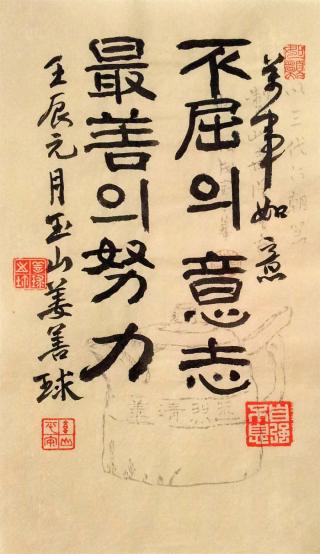 萬事如意
不屈의意志
最善의努力
壬辰元月玉山姜善球
自强不息